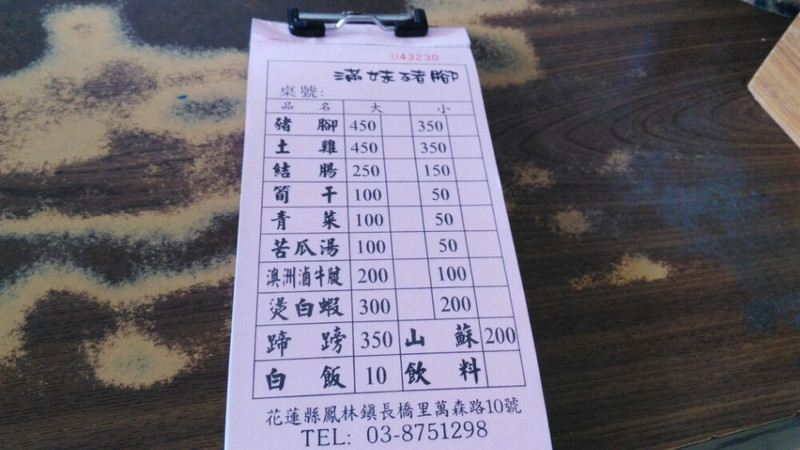 043230
滿妹豬腳
桌號:
品名 大 小
豬腳 450 350
土雞 450 350
結腸 250 150
筍干 100 50
青菜 100 50
苦瓜湯 100 50
澳洲滷牛腱 200 100
燙白蝦 300 200
蹄膀 350 山蘇 200
白飯 10 飲料
花蓮縣鳳林鎮長橋里萬森路10號
TEL: 03-8751298